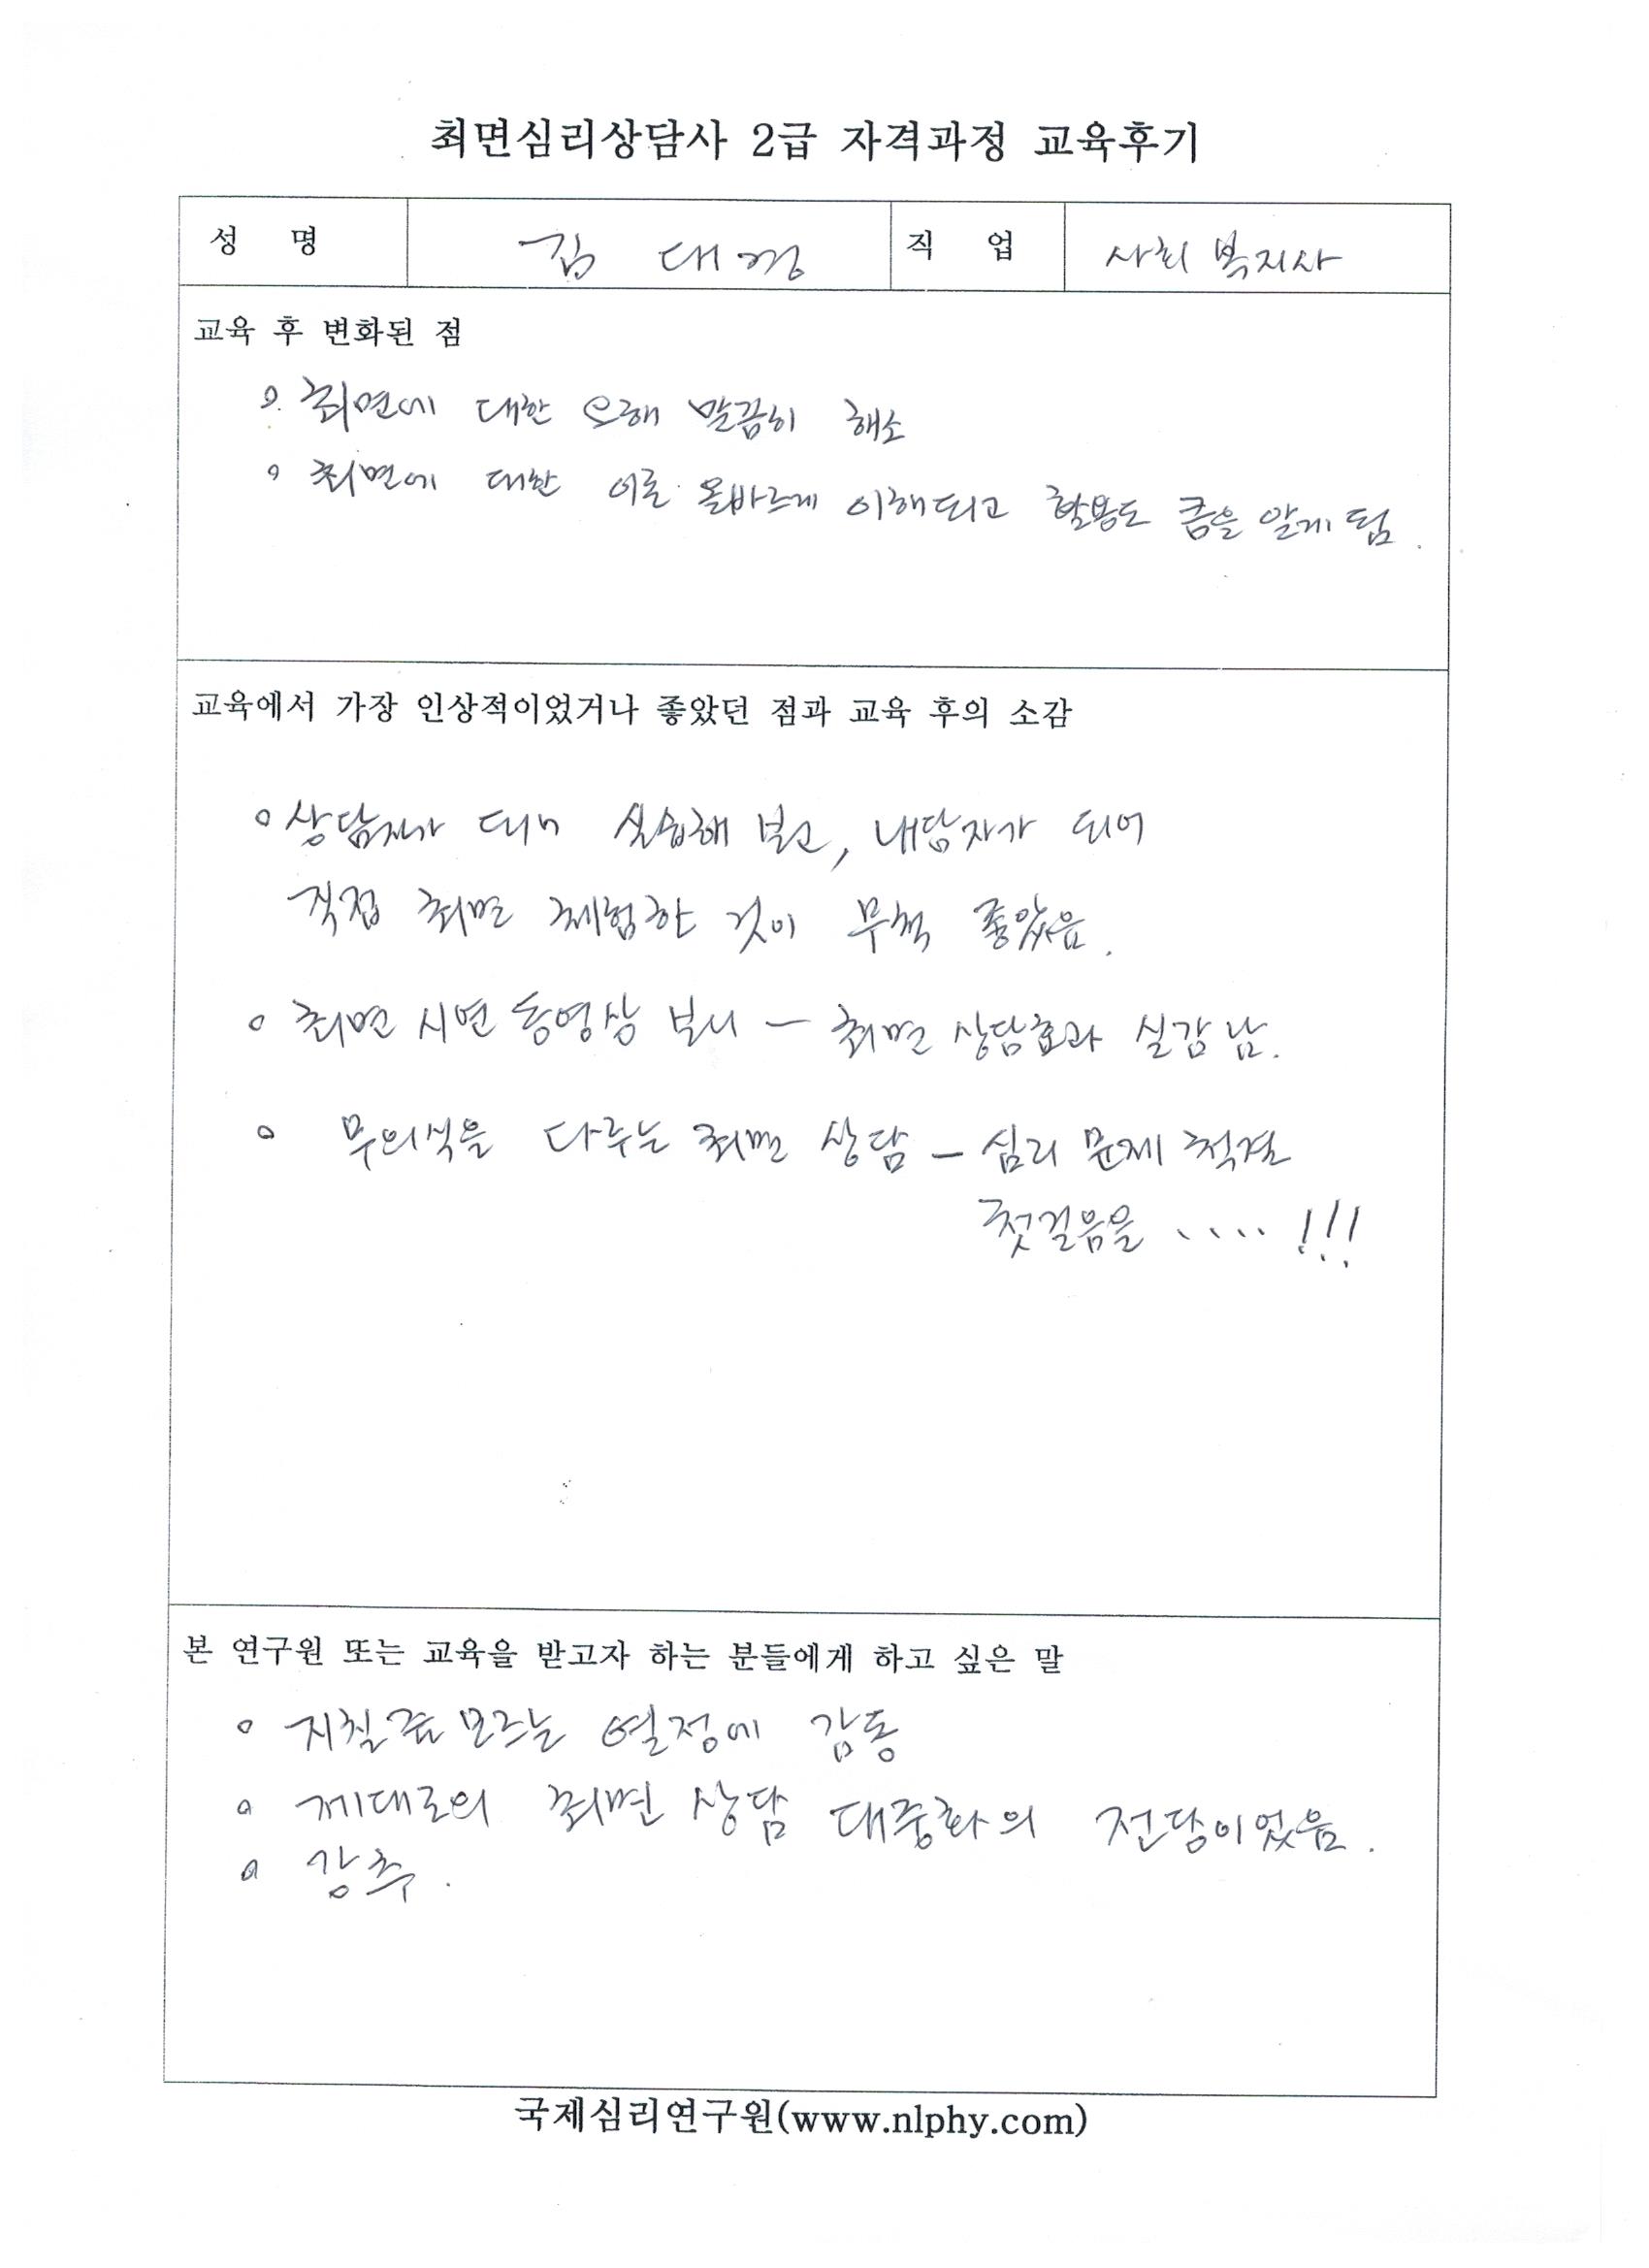 최면심리상담사 2급 자격과정 교육후기
성 명 김 대 직 업 사회복지사
교육 후 변화된 점
o. 최면에 대한 오해 말끔히 해소
o 최면에 대한 이론 올바르게 이해되고 활용도 큼을 알게 됨.
교육에서 가장 인상적이었거나 좋았던 점과 교육 후의 소감
o 상담자가 되어 실습해 보고, 내담자가 되어
직접 최면 체험한 것이 무척 좋았음.
o 최면 시연 동영상 보니 - 최면 상담효과 실감 남.
o 무의식을 다루는 최면 상담 - 심리 문제 척결
첫걸음을 .... !!!
본 연구원 또는 교육을 받고자 하는 분들에게 하고 싶은 말
o 지칠줄 모르는 열정에 감동
o 제대로의 최면 상담 대중화의 전당이었음.
o 강추.
국제심리연구원(www.nlphy.com)